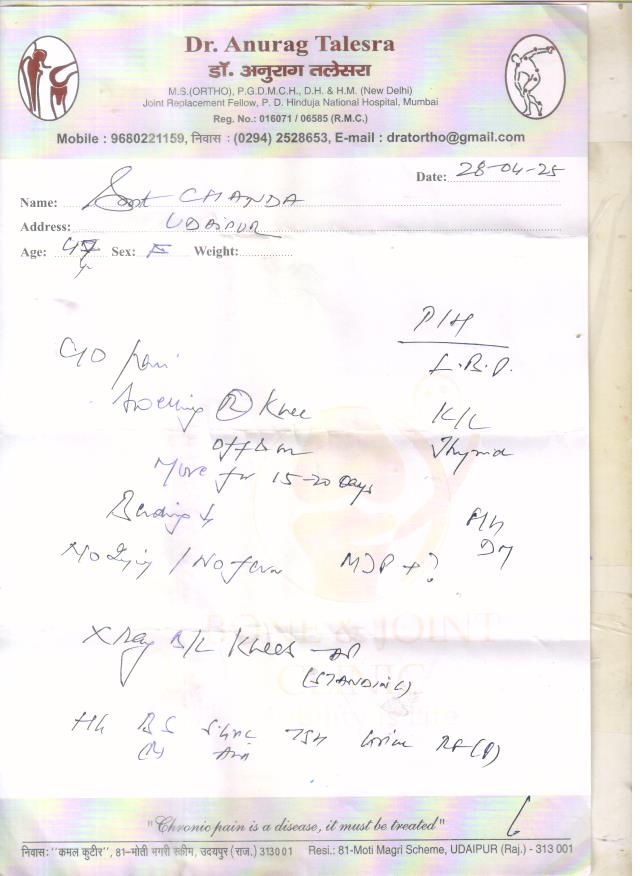 Dr. Anurag Talesra
डॉ. अनुराग तलेसरा
M.S.(ORTHO), P.G.D.M.C.H., D.H. & H.M. (New Delhi)
Joint Replacement Fellow, P. D. Hinduja National Hospital, Mumbai
Reg. No.: 016071 / 06585 (R.M.C.)
Mobile : 9680221159, निवास : (0294) 2528653, E-mail : dratortho@gmail.com
Date: 28-04-25
Name: CHANDA
Address: UDAIPUR
Age: Sex: F Weight:
P/H
C/O pain
L.B.P.
Swelling (R) Knee
K/C
Thyroid
off & on
More for 15-20 Days
Bending ↓
DM
No Injury / No fever MJP + ?
X Ray B/L Knees - AP
(STANDING)
BONE & JOINT
CLINIC
TSH
"Chronic pain is a disease, it must be treated"
निवास: "कमल कुटीर", 81-मोती मगरी स्कीम, उदयपुर (राज.) 313001 Resi.: 81-Moti Magri Scheme, UDAIPUR (Raj.) - 313 001